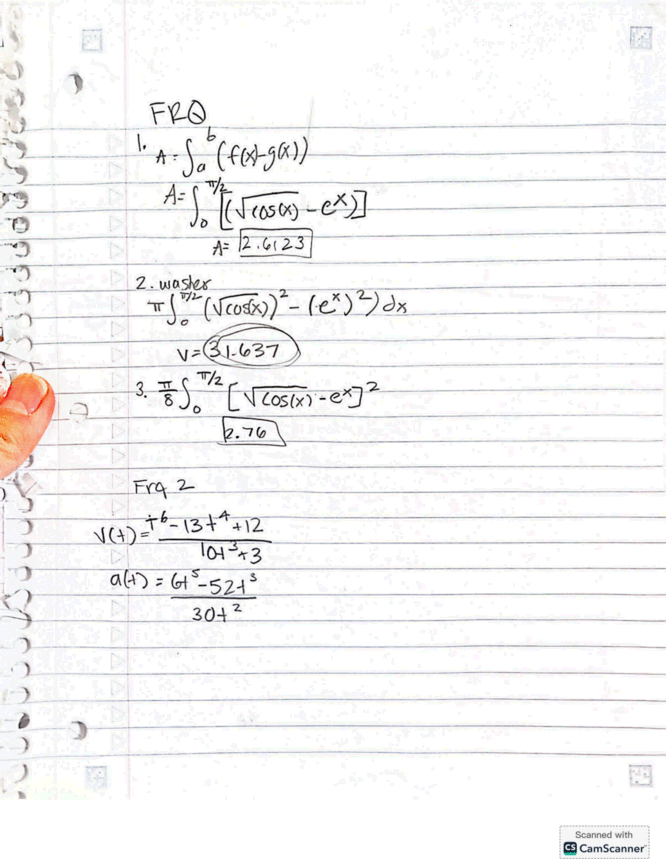 FRQ
1. A = ∫_a^b (f(x)-g(x))
A = ∫_0^{π/2} [(√cos(x) - e^x)]
A = 2.6123
2. washer
π∫_0^{π/2} (√cos(x))^2 - (e^x)^2) dx
V = 31.637
3. π/8 ∫_0^{π/2} [√cos(x) - e^x]^2
2.76
Frq 2
v(t) = (t^6 - 13t^4 + 12)/(10t^3 + 3)
a(t) = (6t^5 - 52t^3)/(30t^2)
Scanned with
CS CamScanner